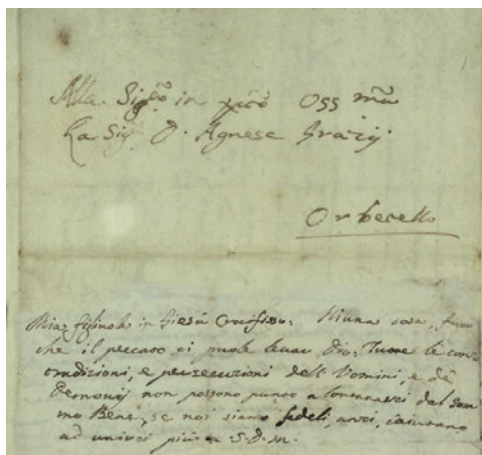 Alla Sig.ra in Xpto Oss.ma
La Sig. D. Agnese Grazij.
Orbecello
Mia Figliuola in Giesù Crocifisso: Niuna cosa, fuori
che il peccato ci puole levar Dio: Tutte le con
tradizioni, e persecuzioni dell' Uomini, e de
Demonij non possono punto allontanarci dal Som
mo Bene, se noi siamo fedeli, anzi, c'aiutano
ad unirci più a S.D.M.